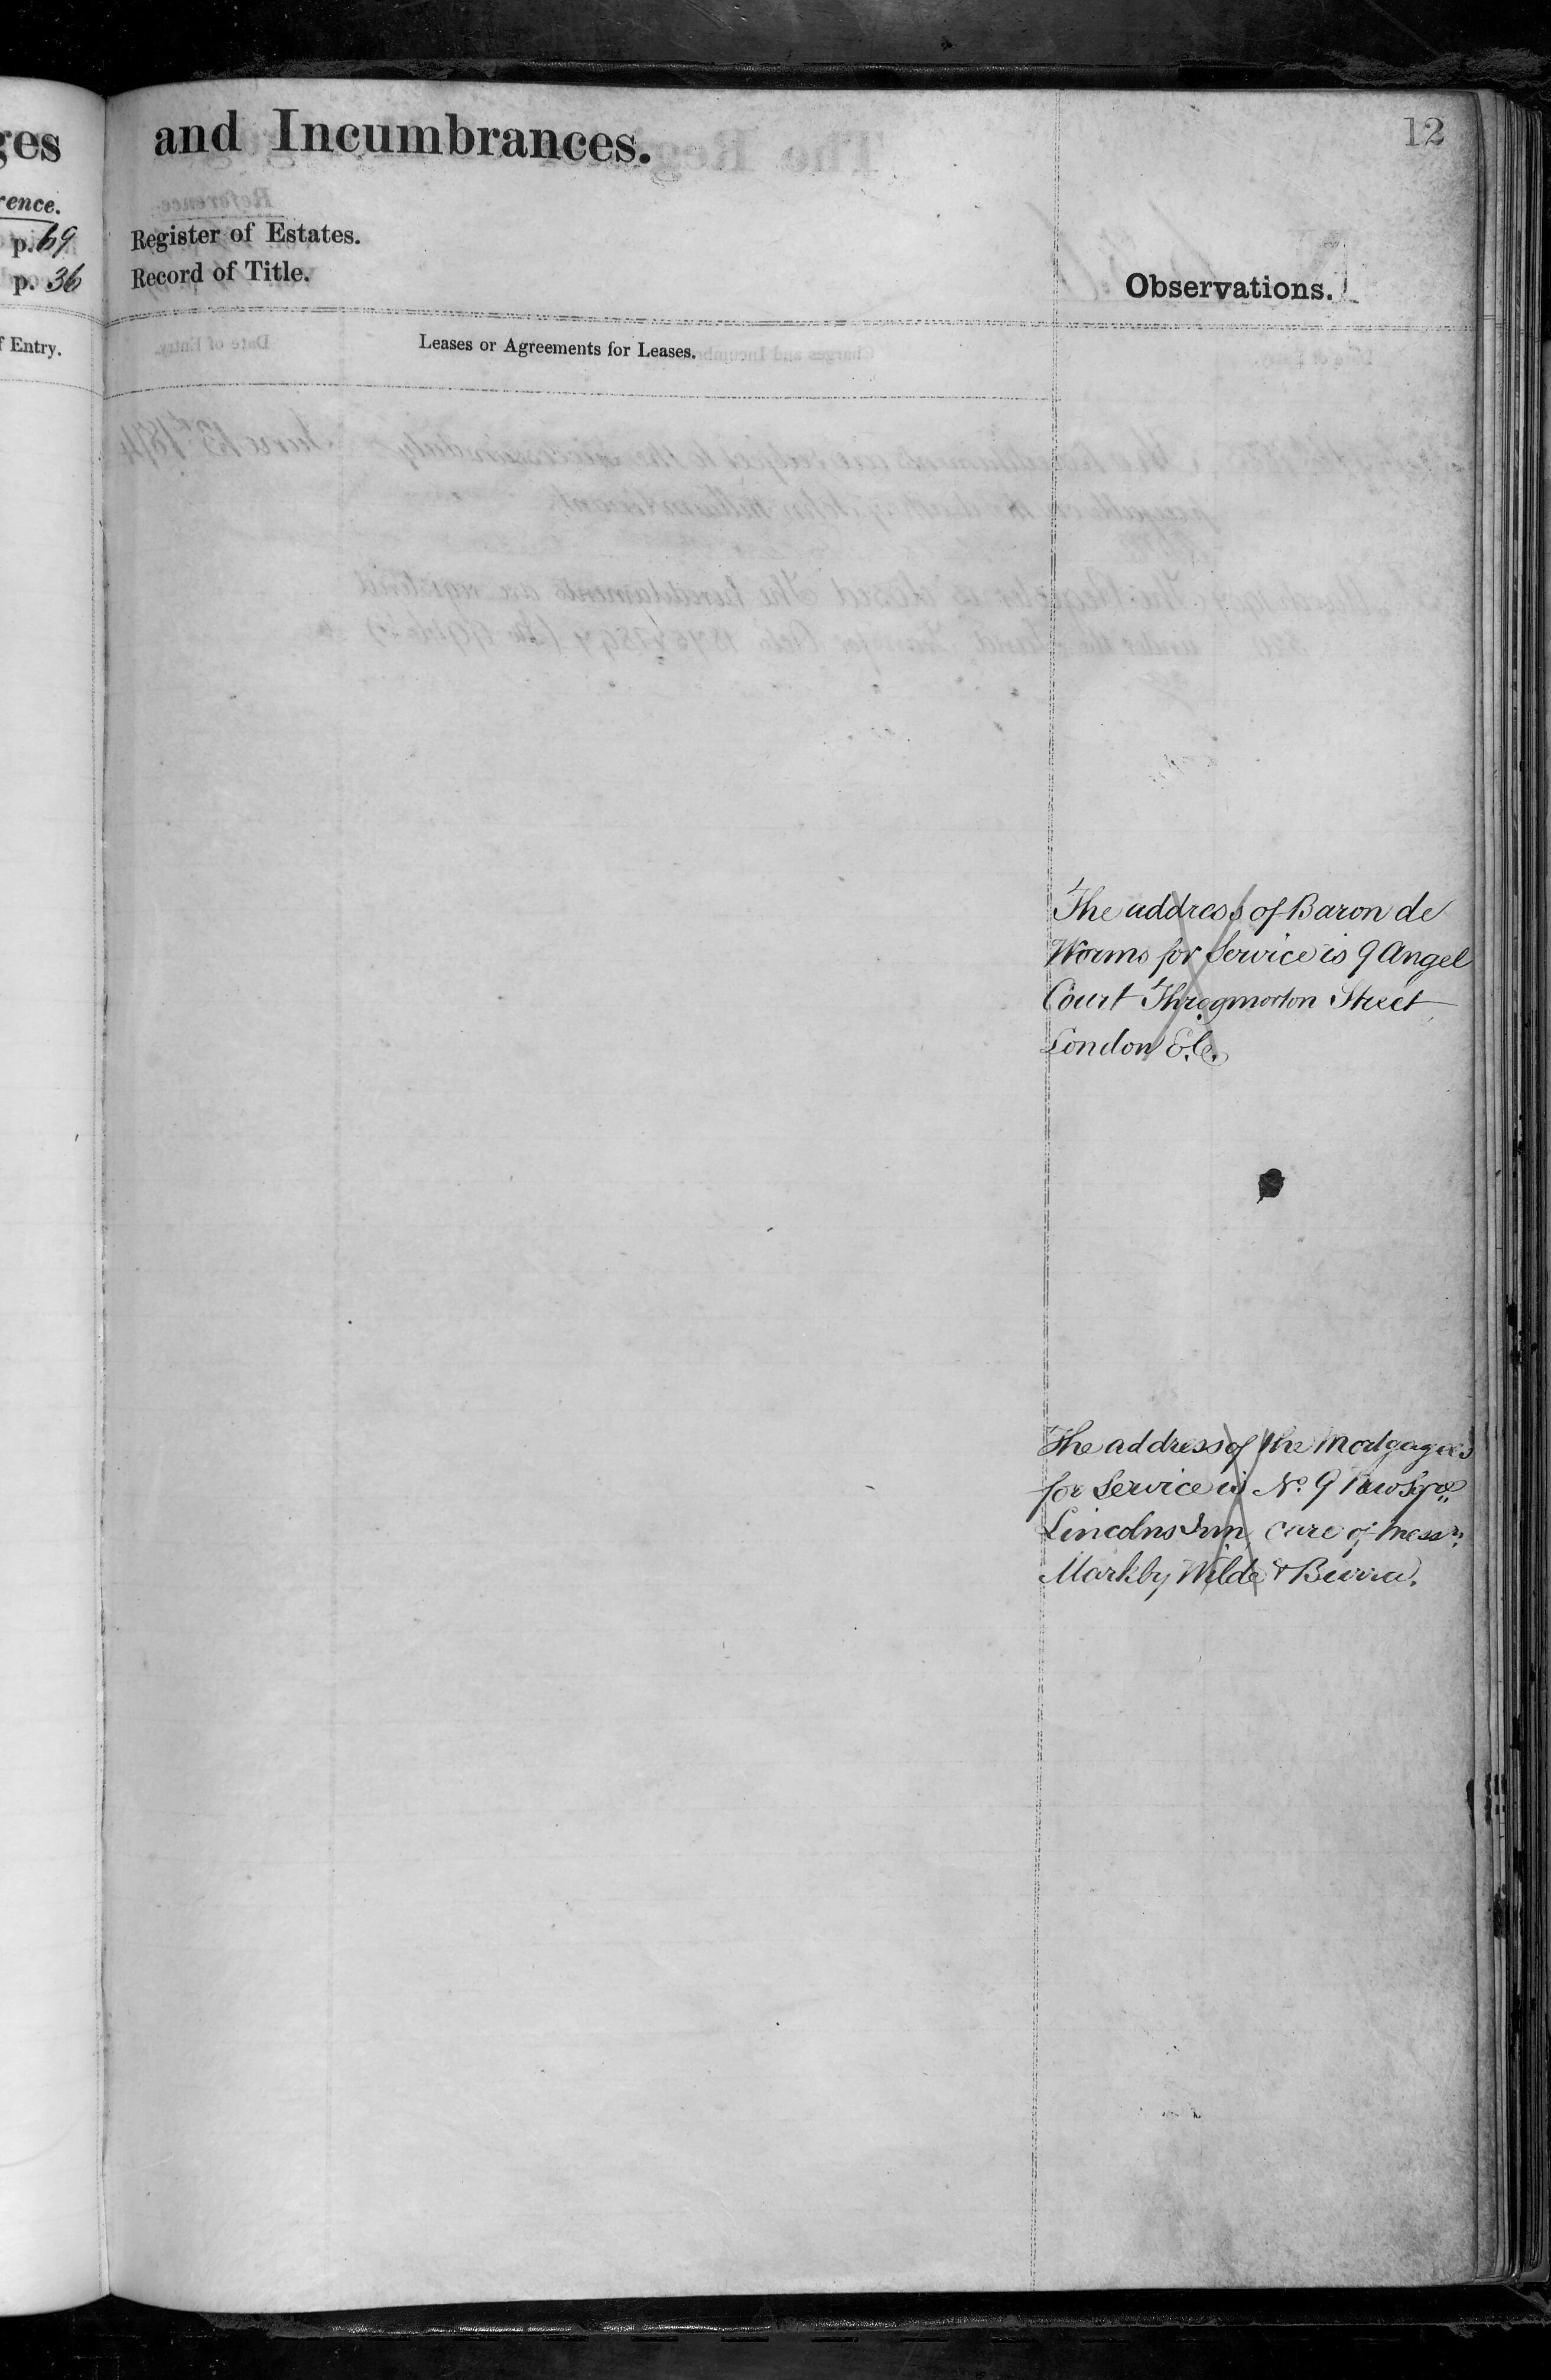 ges
and Incumbrances.
12
rence.
p. 69
Register of Estates.
p. 36
Record of Title.
Observations.
f Entry.
Leases or Agreements for Leases.
The address of Baron de
Worms for Service is 9 Angel
Court Throgmorton Street
London E.C.
The address of the Mortgagees
for Service is No. 9 New Sqre
Lincolns Inn care of Messrs
Markby Wilde & Burra.